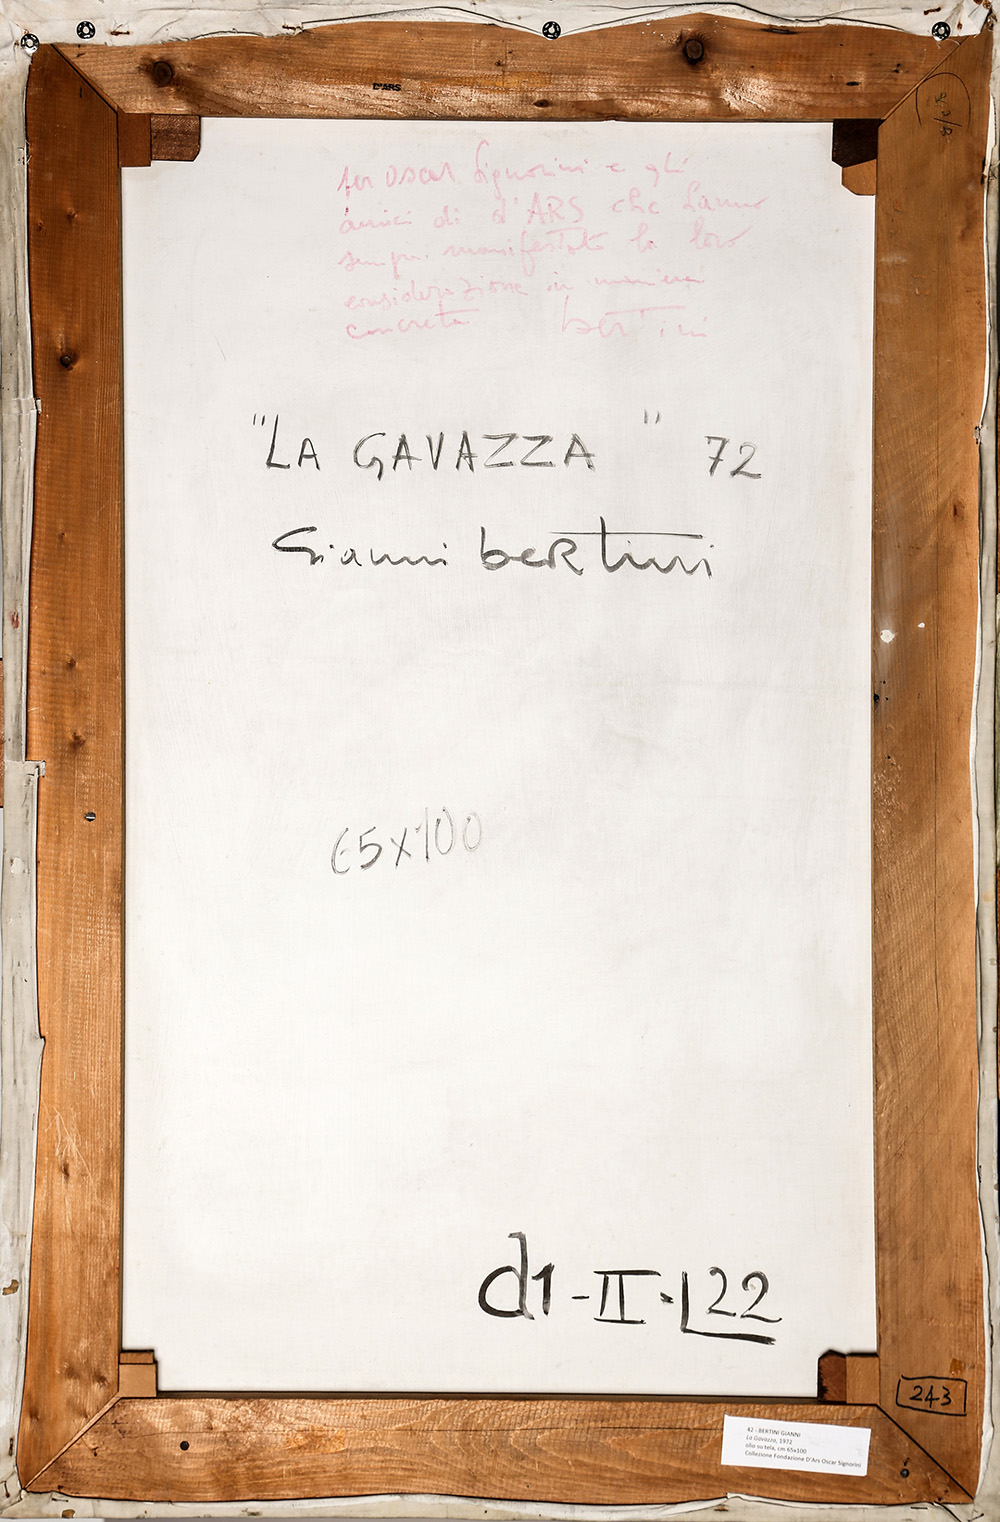 D'ARS
per Oscar Signorini e gli
amici di d'ARS che hanno
sempre manifestato la loro
considerazione in maniera
concreta bertini
"LA GAVAZZA" 72
Gianni bertini
65x100
d1-II-L22
243
42 - BERTINI GIANNI
La Gavazza, 1972
olio su tela, cm 65x100
Collezione Fondazione D'Ars Oscar Signorini